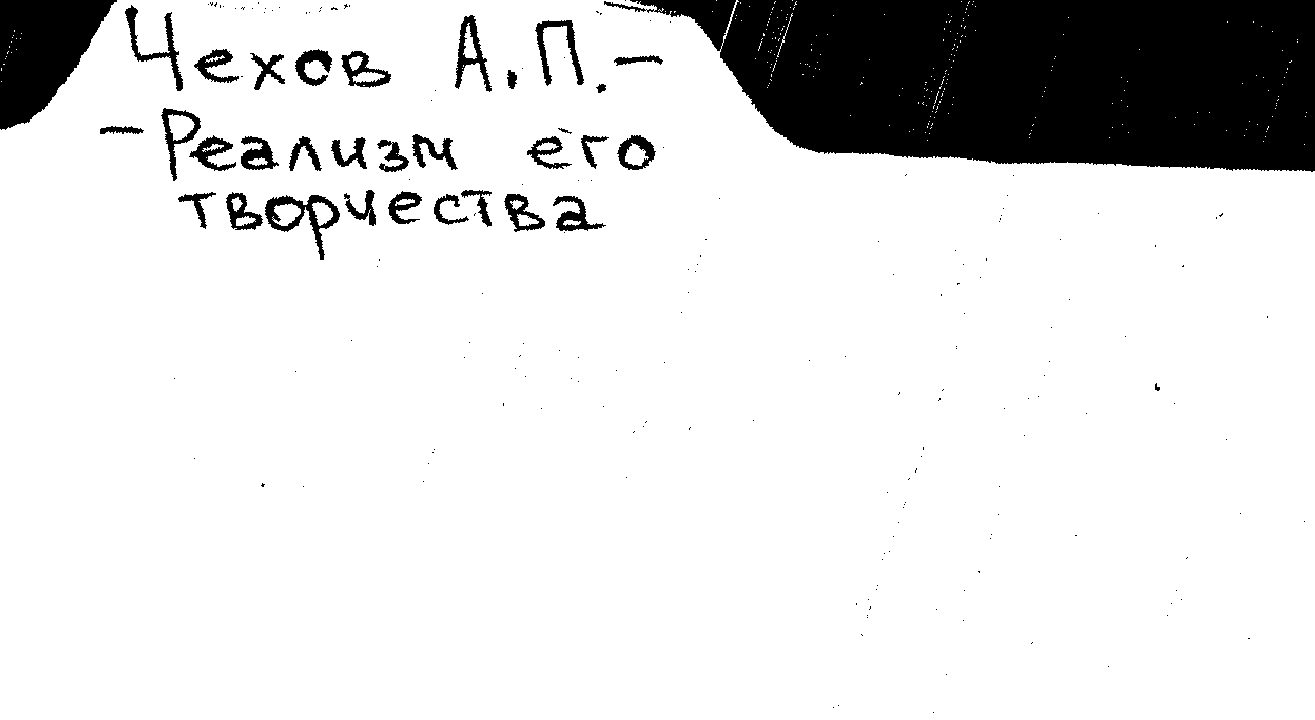 Чехов А.П.-
-Реализм его
творчества